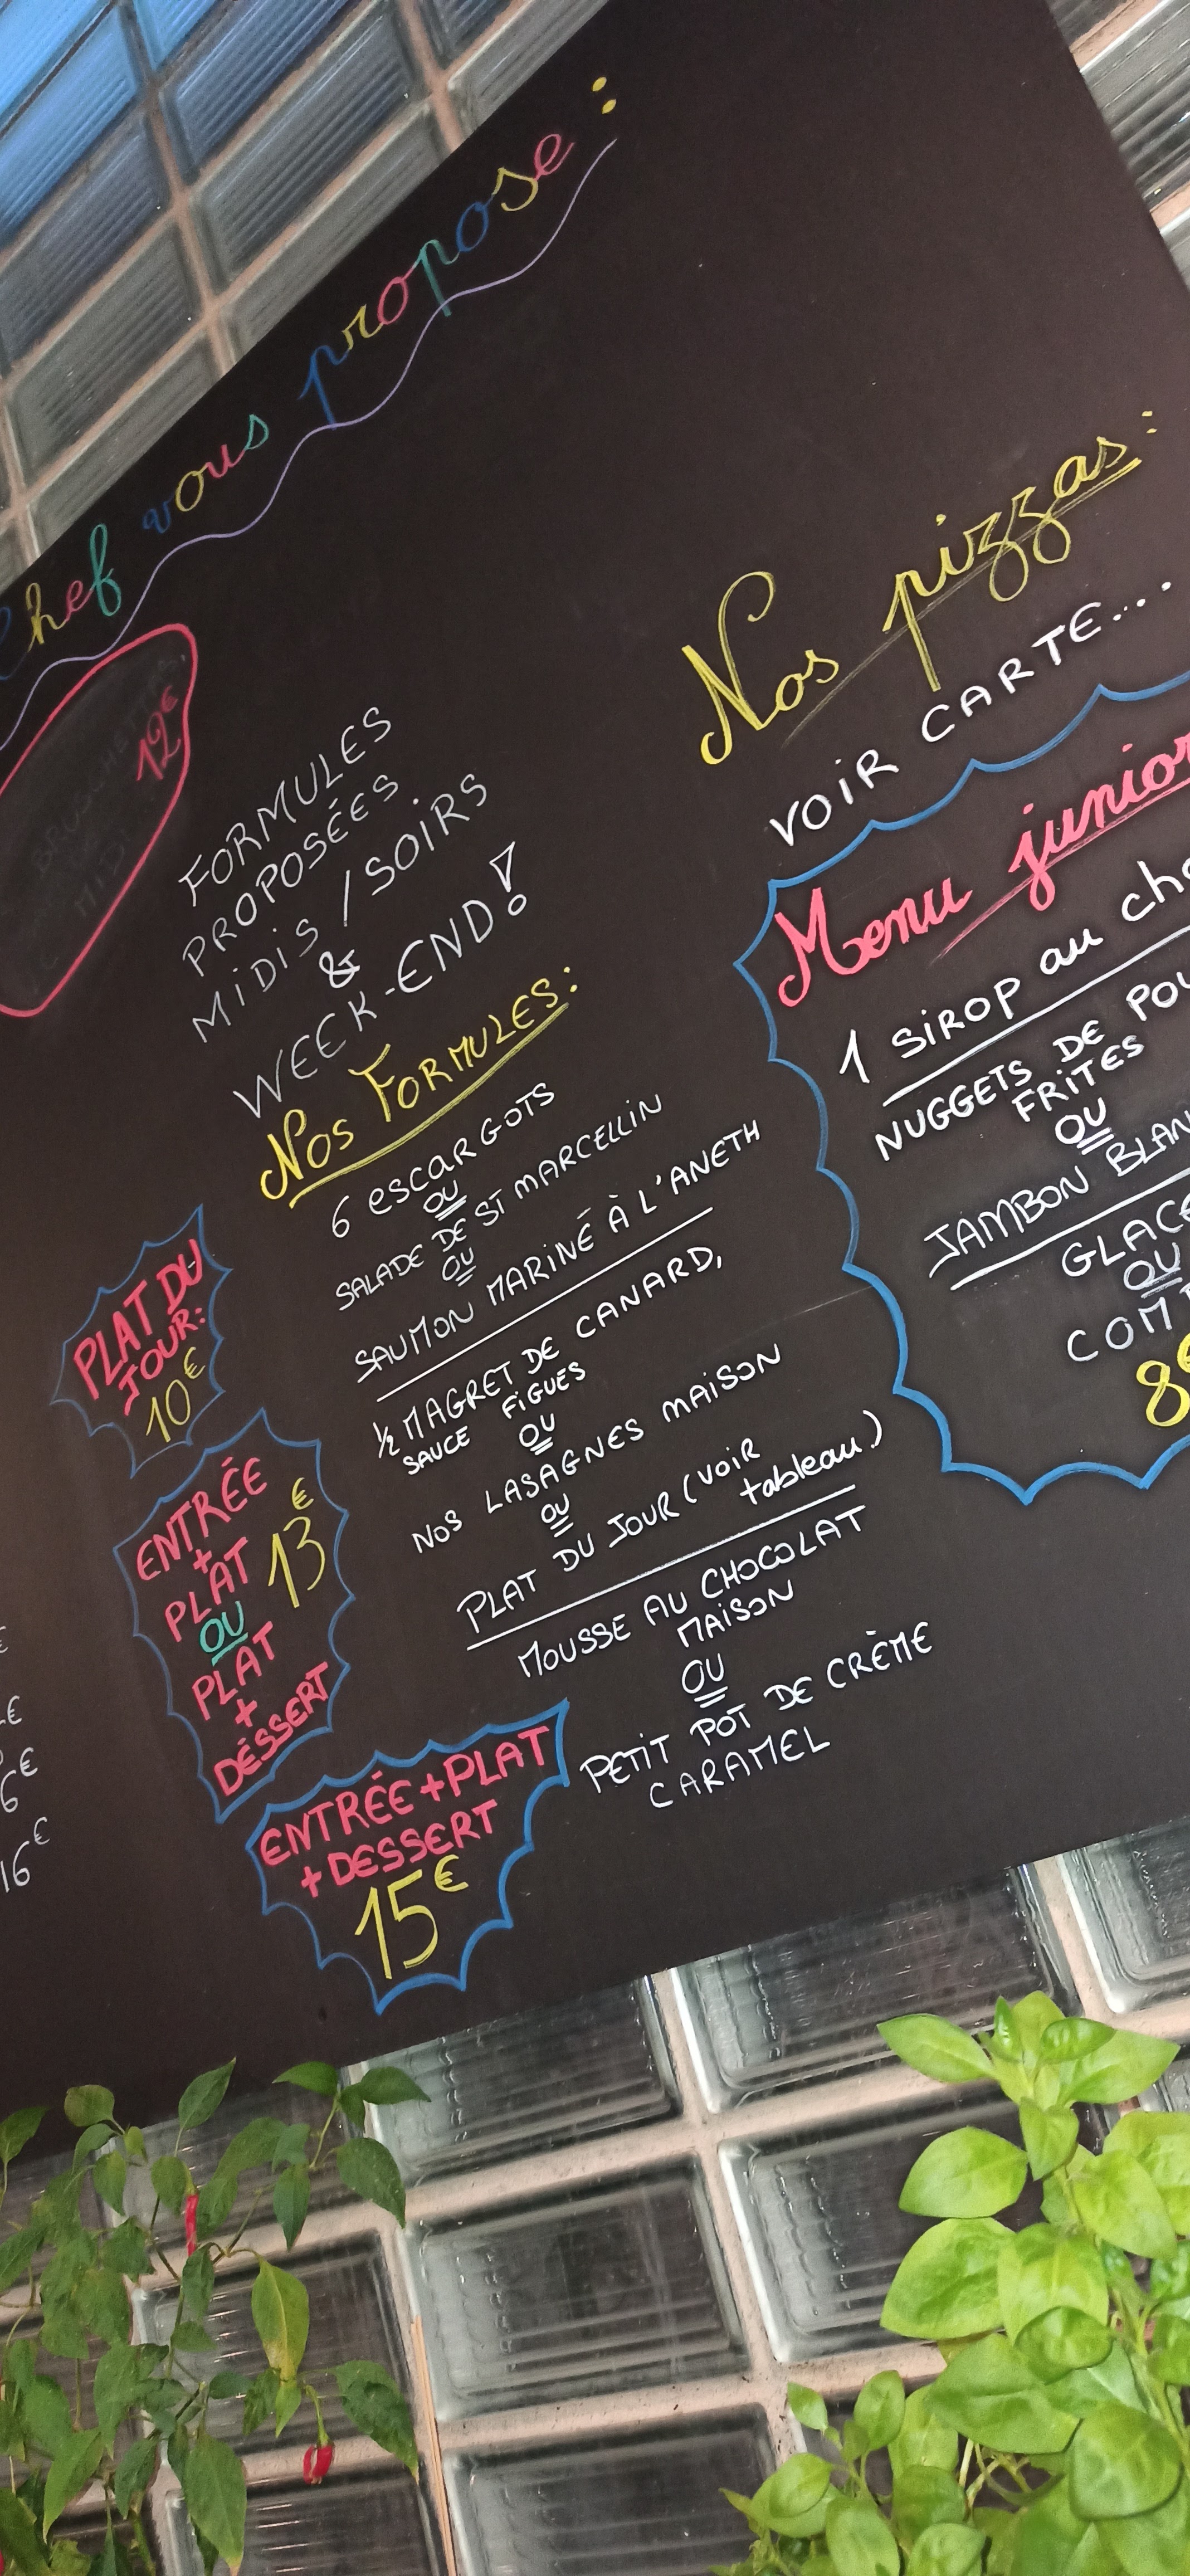 Chef vous propose :
12€
FORMULES
PROPOSÉES
MIDIS / SOIRS
&
WEEK-END !
Nos FORMULES :
6 escarGOTS
OU
SALADE DE ST MARCELLIN
OU
SAUMON MARINÉ À L'ANETH
½ MAGRET DE CANARD,
SAUCE FIGUES
OU
NOS LASAGNES MAISON
OU
PLAT DU JOUR (voir
tableau)
MOUSSE AU CHOCOLAT
MAISON
OU
PETIT POT DE CRÈME
CARAMEL
PLAT DU
JOUR:
10€
ENTRÉE
+
PLAT
OU
PLAT
+
DÉSSERT
13€
ENTRÉE + PLAT
+ DESSERT
15€
6€
16€
Nos pizzas :
VOIR CARTE...
Menu junior
1 SIROP au cho
NUGGETS DE POU
FRITES
OU
JAMBON BLAN
GLACE
OU
COMP
8€